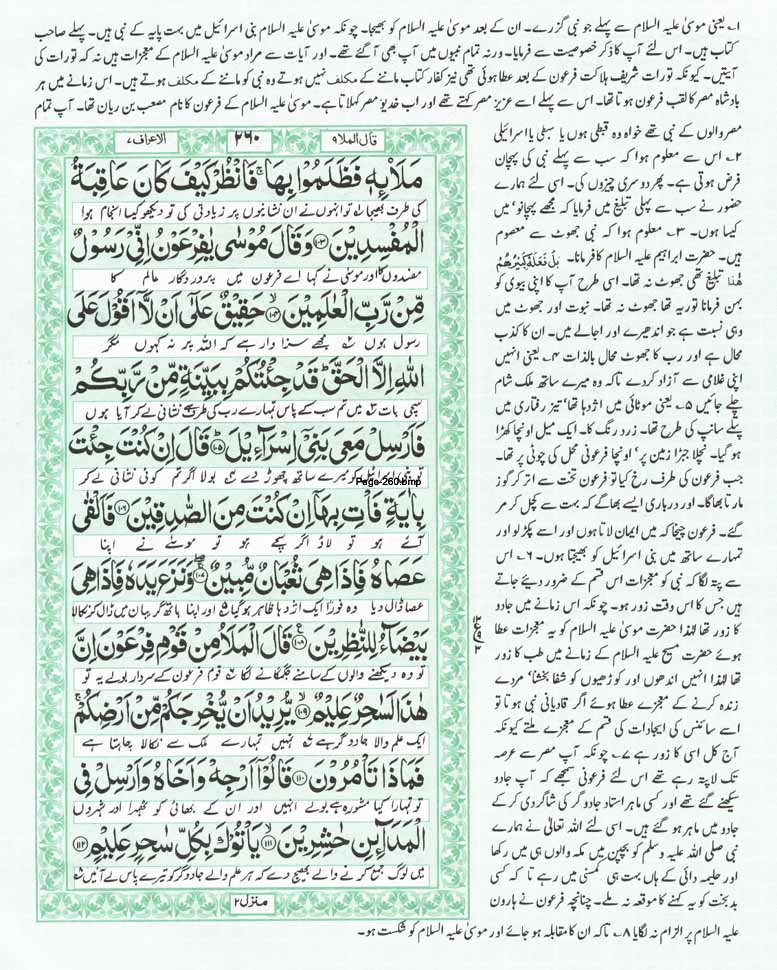 ۱۔ یعنی موسیٰ علیہ السلام سے پہلے جو نبی گزرے۔ ان کے بعد موسیٰ علیہ السلام کو بھیجا۔ چونکہ موسیٰ علیہ السلام بنی اسرائیل میں بہت پایہ کے نبی ہیں۔ پہلے صاحب
کتاب ہیں۔ اس لئے آپ کا ذکر خصوصیت سے فرمایا۔ ورنہ تمام نبیوں میں آپ بھی آ گئے تھے۔ اور آیات سے مراد موسیٰ علیہ السلام کے معجزات ہیں نہ کہ تورات کی
آیتیں۔ کیونکہ تورات شریف ہلاکت فرعون کے بعد عطا ہوئی تھی نیز کفار کتاب ماننے کے مکلف نہیں ہوتے وہ نبی کو ماننے کے مکلف ہوتے ہیں۔ اس زمانے میں ہر
بادشاہ مصر کا لقب فرعون ہوتا تھا۔ اس سے پہلے اسے عزیز مصر کہتے تھے اور اب خدیو مصر کہلاتا ہے۔ موسیٰ علیہ السلام کے فرعون کا نام مصعب بن ریان تھا۔ آپ تمام
مصر والوں کے نبی تھے خواہ وہ قبطی ہوں یا سبطی یا اسرائیلی
۲۔ اس سے معلوم ہوا کہ سب سے پہلے نبی کی پہچان
فرض ہوتی ہے۔ پھر دوسری چیزوں کی۔ اسی لئے ہمارے
حضور نے سب سے پہلی تبلیغ میں فرمایا کہ مجھے پہچانو‘ میں
کیسا ہوں۔ ۳۔ معلوم ہوا کہ نبی جھوٹ سے معصوم
ہیں۔ حضرت ابراہیم علیہ السلام کا فرمانا۔ بَلْ فَعَلَهٗ كَبِيْرُهُمْ
هٰذَا تبلیغ تھی جھوٹ نہ تھا۔ اسی طرح آپ کا اپنی بیوی کو
بہن فرمانا توریہ تھا جھوٹ نہ تھا۔ نبوت اور جھوٹ میں
وہی نسبت ہے جو اندھیرے اور اجالے میں۔ ان کا کذب
محال ہے اور رب کا جھوٹ محال بالذات ۴۔ یعنی انہیں
اپنی غلامی سے آزاد کر دے تاکہ وہ میرے ساتھ ملک شام
چلے جائیں ۵۔ یعنی موٹائی میں اژدہا تھا‘ تیز رفتاری میں
پتلے سانپ کی طرح تھا۔ زرد رنگ کا۔ ایک میل اونچا کھڑا
ہو گیا۔ نچلا جبڑا زمین پر‘ اونچا فرعونی محل کی چوٹی پر تھا۔
جب فرعون کی طرف رخ کیا تو فرعون تخت سے اتر کر گوز
مارتا بھاگا۔ اور درباری ایسے بھاگے کہ بہت سے کچل کر مر
گئے۔ فرعون چیخا کہ میں ایمان لاتا ہوں اور اسے پکڑ لو اور
تمہارے ساتھ میں بنی اسرائیل کو بھیجتا ہوں۔ ۶۔ اس
سے پتہ لگا کہ نبی کو معجزات اس قسم کے ضرور دیئے جاتے
ہیں جس کا اس وقت زور ہو۔ چونکہ اس زمانے میں جادو
کا زور تھا لہٰذا حضرت موسیٰ علیہ السلام کو یہ معجزات عطا
ہوئے حضرت مسیح علیہ السلام کے زمانے میں طب کا زور
تھا لہٰذا انہیں اندھوں اور کوڑھیوں کو شفا بخشنا‘ مردے
زندہ کرنے کے معجزے عطا ہوئے اگر قادیانی نبی ہوتا تو
اسے سائنس کی ایجادات کی قسم کے معجزے ملتے کیونکہ
آج کل اسی کا زور ہے ۷۔ چونکہ آپ مصر سے عرصہ
تک لاپتہ رہے تھے اس لئے فرعونی سمجھے کہ آپ جادو
سیکھنے گئے تھے اور کسی ماہر استاد جادوگر کی شاگردی کر کے
جادو میں ماہر ہو گئے ہیں۔ اسی لئے اللہ تعالیٰ نے ہمارے
نبی صلی اللہ علیہ وسلم کو بچپن میں مکہ والوں ہی میں رکھا
اور حلیمہ دائی کے ہاں بہت ہی کمسنی میں رہے تا کہ کسی
بدبخت کو یہ کہنے کا موقعہ نہ ملے۔ چنانچہ فرعون نے ہارون
علیہ السلام پر الزام نہ لگایا ۸۔ تاکہ ان کا مقابلہ ہو جائے اور موسیٰ علیہ السلام کو شکست ہو۔
قال الملا۹ ۲۶۰ الاعراف۷
مَلَا۟ئِهٖ فَظَلَمُوْا بِهَا ۚ فَانْظُرْ كَيْفَ كَانَ عَاقِبَةُ
کی طرف بھیجا تو انہوں نے ان نشانیوں پر زیادتی کی تو دیکھو کیسا انجام ہوا
الْمُفْسِدِيْنَ ۝۱۰۳ وَقَالَ مُوْسٰى يٰفِرْعَوْنُ اِنِّىْ رَسُوْلٌ
مفسدوں کا اور موسیٰ نے کہا اے فرعون میں پروردگار عالم کا
مِّنْ رَّبِّ الْعٰلَمِيْنَ ۝۱۰۴ حَقِيْقٌ عَلٰٓى اَنْ لَّاۤ اَقُوْلَ عَلَى
رسول ہوں مجھے سزاوار ہے کہ اللہ پر نہ کہوں مگر
اللّٰهِ اِلَّا الْحَقَّ ؕ قَدْ جِئْتُكُمْ بِبَيِّنَةٍ مِّنْ رَّبِّكُمْ
سچی بات میں تم سب کے پاس تمہارے رب کی طرف سے نشانی لے کر آیا ہوں
فَاَرْسِلْ مَعِىَ بَنِىْۤ اِسْرَآءِيْلَ ۝۱۰۵ قَالَ اِنْ كُنْتَ جِئْتَ
تو بنی اسرائیل کو میرے ساتھ چھوڑ دے بولا اگر تم کوئی نشانی لے کر
Page-260.bmp
بِاٰيَةٍ فَاْتِ بِهَاۤ اِنْ كُنْتَ مِنَ الصّٰدِقِيْنَ ۝۱۰۶ فَاَلْقٰى
آئے ہو تو لاؤ اگر سچے ہو تو موسیٰ نے اپنا
عَصَاهُ فَاِذَا هِىَ ثُعْبَانٌ مُّبِيْنٌ ۝۱۰۷ وَّنَزَعَ يَدَهٗ فَاِذَا هِىَ
عصا ڈال دیا وہ فوراً ایک اژدہا ظاہر ہو گیا اور اپنا ہاتھ گریبان میں ڈال کر نکالا
بَيْضَآءُ لِلنّٰظِرِيْنَ ۝۱۰۸ قَالَ الْمَلَاُ مِنْ قَوْمِ فِرْعَوْنَ اِنَّ
تو وہ دیکھنے والوں کے سامنے جگمگانے لگا قوم فرعون کے سردار بولے یہ تو
هٰذَا لَسٰحِرٌ عَلِيْمٌ ۝۱۰۹ يُّرِيْدُ اَنْ يُّخْرِجَكُمْ مِّنْ اَرْضِكُمْ ۚ
ایک علم والا جادوگر ہے تمہیں تمہارے ملک سے نکالا چاہتا ہے
فَمَاذَا تَاْمُرُوْنَ ۝۱۱۰ قَالُوْۤا اَرْجِهْ وَاَخَاهُ وَاَرْسِلْ فِى
تو تمہارا کیا مشورہ ہے بولے انہیں اور ان کے بھائی کو ٹھہرا اور شہروں
الْمَدَآئِنِ حٰشِرِيْنَ ۝۱۱۱ يَاْتُوْكَ بِكُلِّ سٰحِرٍ عَلِيْمٍ ۝۱۱۲
میں لوگ جمع کرنے والے بھیج دے کہ ہر علم والے جادوگر کو تیرے پاس لے آئیں
منزل۲